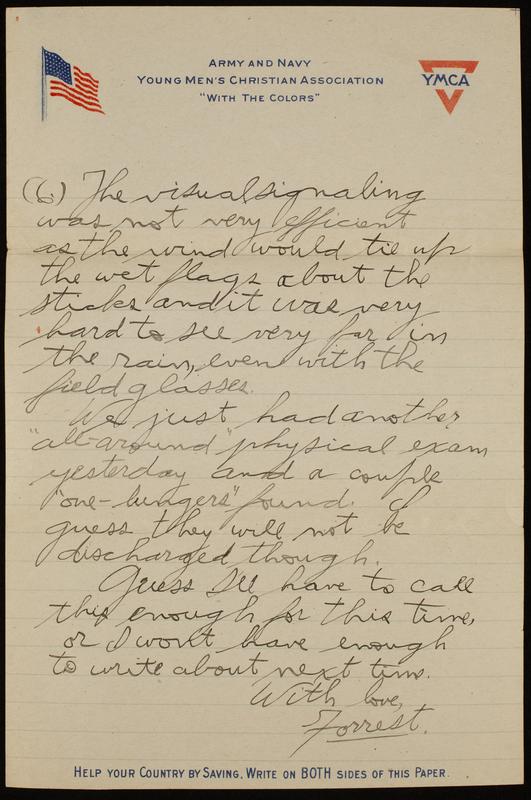 ARMY AND NAVY
YOUNG MEN'S CHRISTIAN ASSOCIATION
"WITH THE COLORS"
YMCA
(6) The visual signaling
was not very efficient
as the wind would tie up
the wet flags about the
sticks and it was very
hard to see very far in
the rain, even with the
field glasses.
We just had another
"all-around" physical exam
yesterday and a couple
"one-lungers" found. I
guess they will not be
discharged though.
Guess I'll have to call
this enough for this time,
or I won't have enough
to write about next time.
With love,
Forrest.
HELP YOUR COUNTRY BY SAVING. WRITE ON BOTH SIDES OF THIS PAPER.